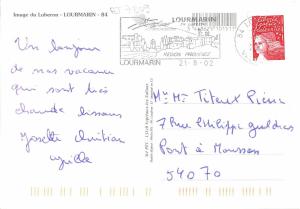 Image du Luberon - LOURMARIN - 84
Un bonjour
de nos vacances
qui sont très
chaudes bisous
Josette Christian
Cyrille
LOURMARIN
REGION PROVENCE
LOURMARIN
21-8-02
84
Mr Mme Titeux Pierre
7 Rue Philippe
Pont à Mousson
54070